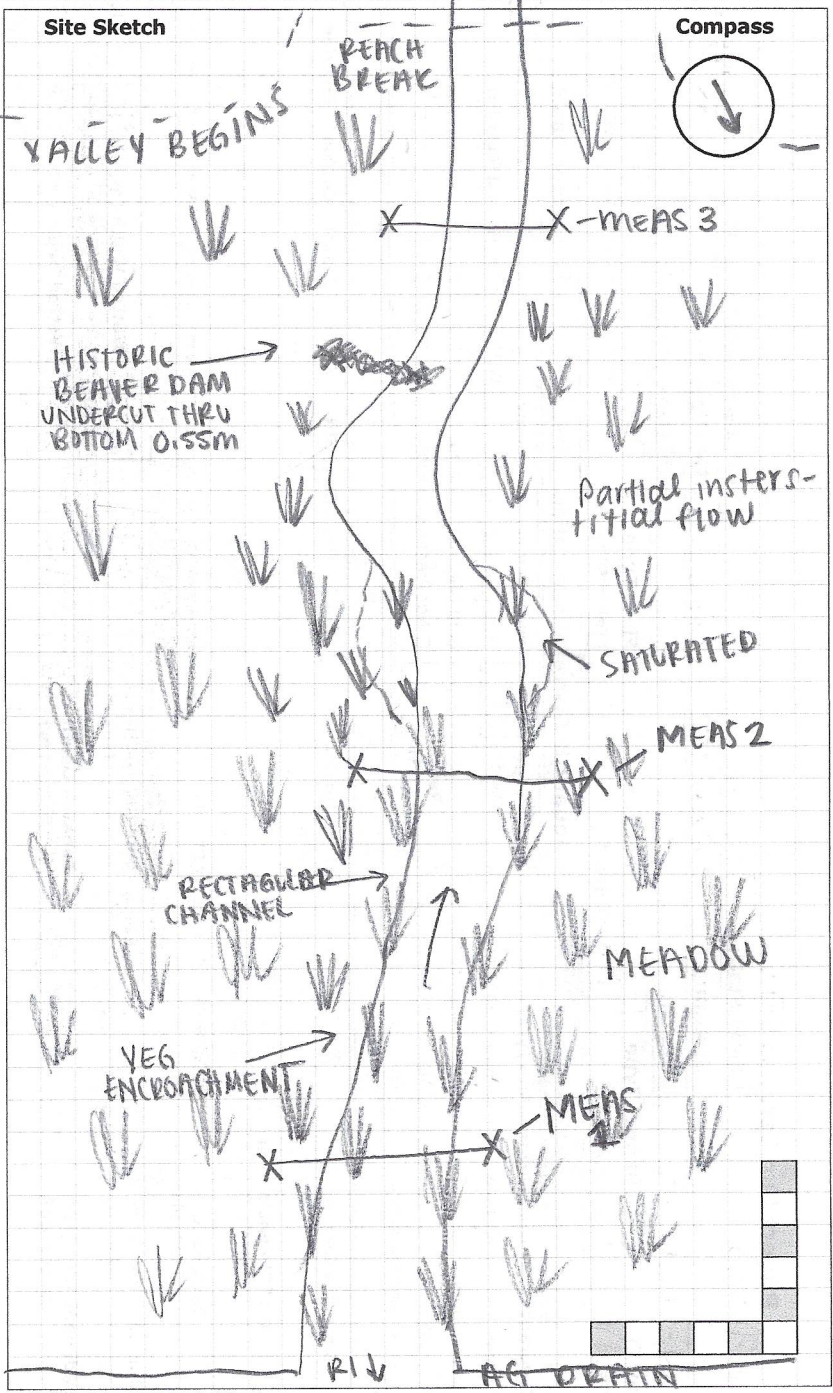 Site Sketch
Compass
REACH
BREAK
VALLEY BEGINS
MEAS 3
HISTORIC
BEAVER DAM
UNDERCUT THRU
BOTTOM 0.55m
Partial insters-
titial flow
SATURATED
MEAS 2
RECTAGULAR
CHANNEL
MEADOW
VEG
ENCROACHMENT
MEAS
1
R1
AG DRAIN